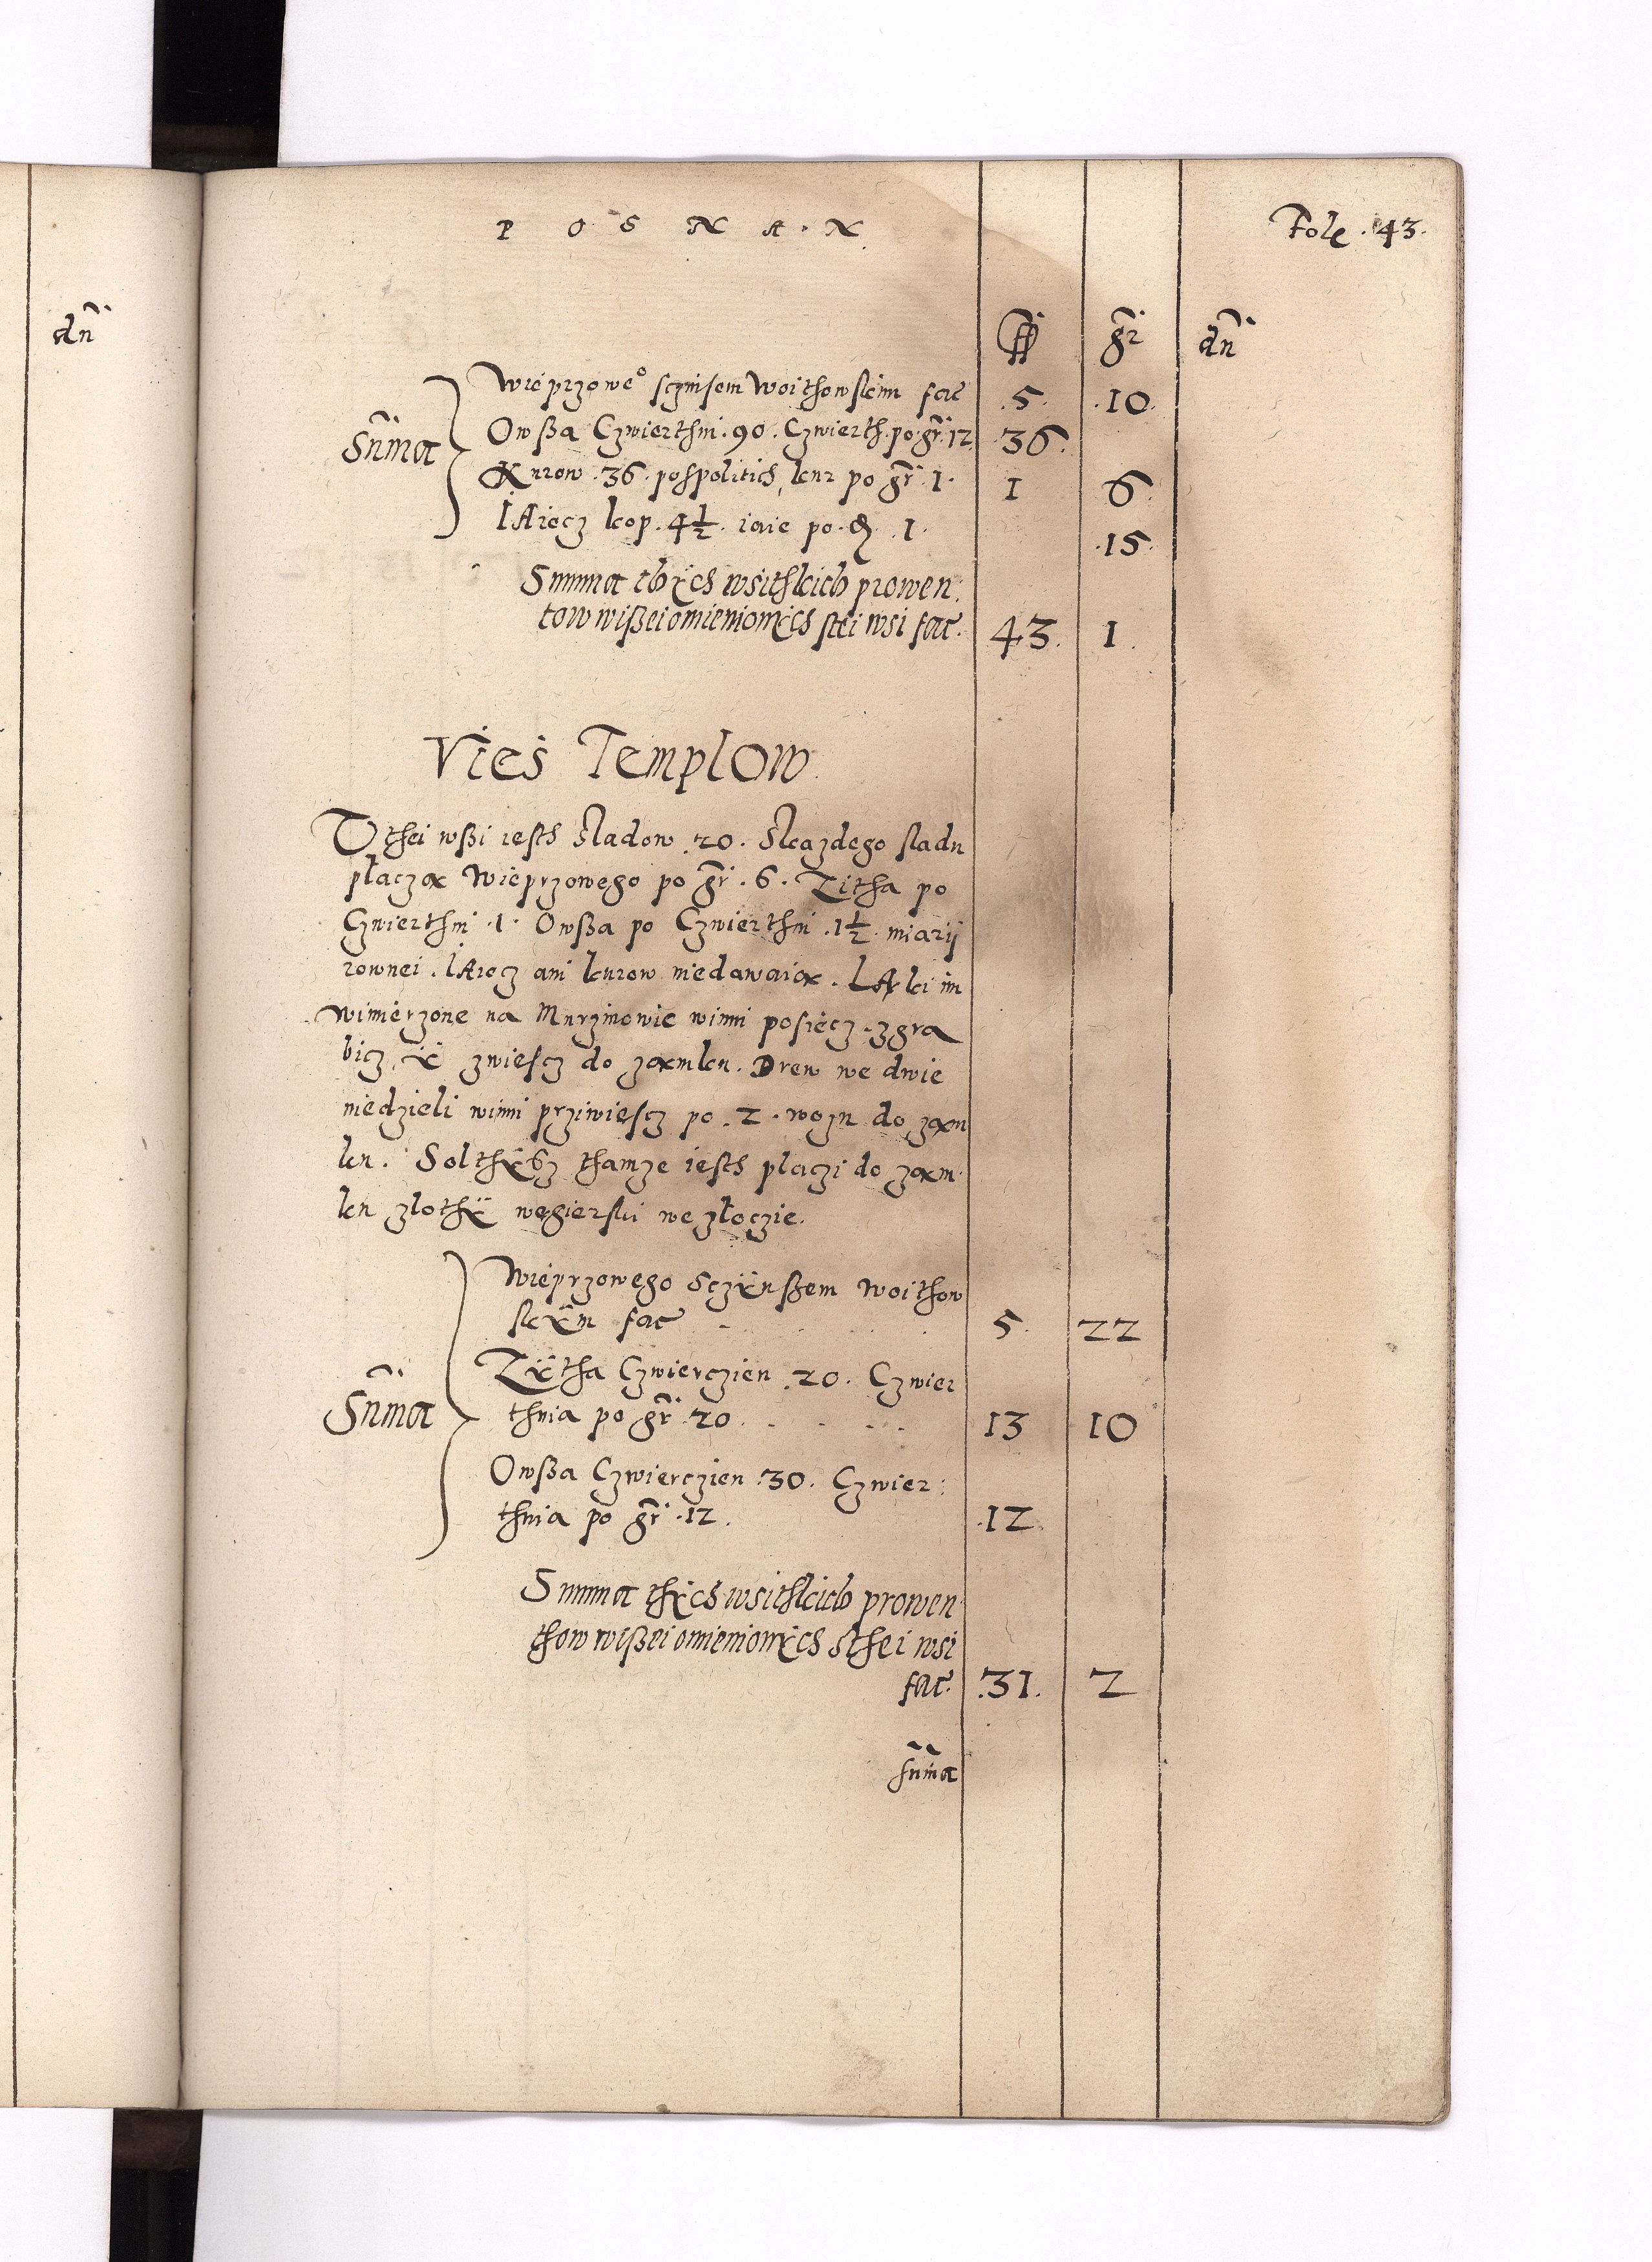 P O S N A N
Fole. 43.
dñ
ff gr dñ
Wieprzoweo sczinsem Woithowskim fac 5. 10.
Owßa Czwierthni. 90. Czwierth. po. gr. 12 36.
Sum̃a
Kurow. 36. pospolitich, kur po gr. 1. 1 6
IAiecz kop. 4½. iaie po. 1. 15.
Summa thÿch wsithkich prowen:
tow wißei omienionÿch stei wsi fac. 43. 1.
Vies Templow
W thei wßi iesth sladow. 20. Skazdego sladu
placzą Wieprzowego po gr. 6. Zitha po
Czwierthni. 1. Owßa po Czwierthni. 1½. miarÿ
rownei. IAiecz ani kurow niedawaią. LAki im
wimierzone na Murzinowie winni posiecz. zgra
bicz, ÿ zwiescz do zamku. Drew we dwie
niedzieli winni prziwiescz po. 2. wozu do zam
ku. Solthÿßz thamze iesth placzi do zam.
ku zlothÿ węgierski we zloczie.
Wieprzowego sczÿnßem Woithow
skÿm fac 5. 22
Zÿtha Czwierczien. 20. Czwier
Sum̃a thnia po gr. 20. 13 10
Owßa Czwierczien. 30. Czwier:
thnia po gr. 12. 12.
Summa thÿch wsithkich prowen
thow wißei omienionÿch sthei wsi
fac. 31. 2
sum̃a